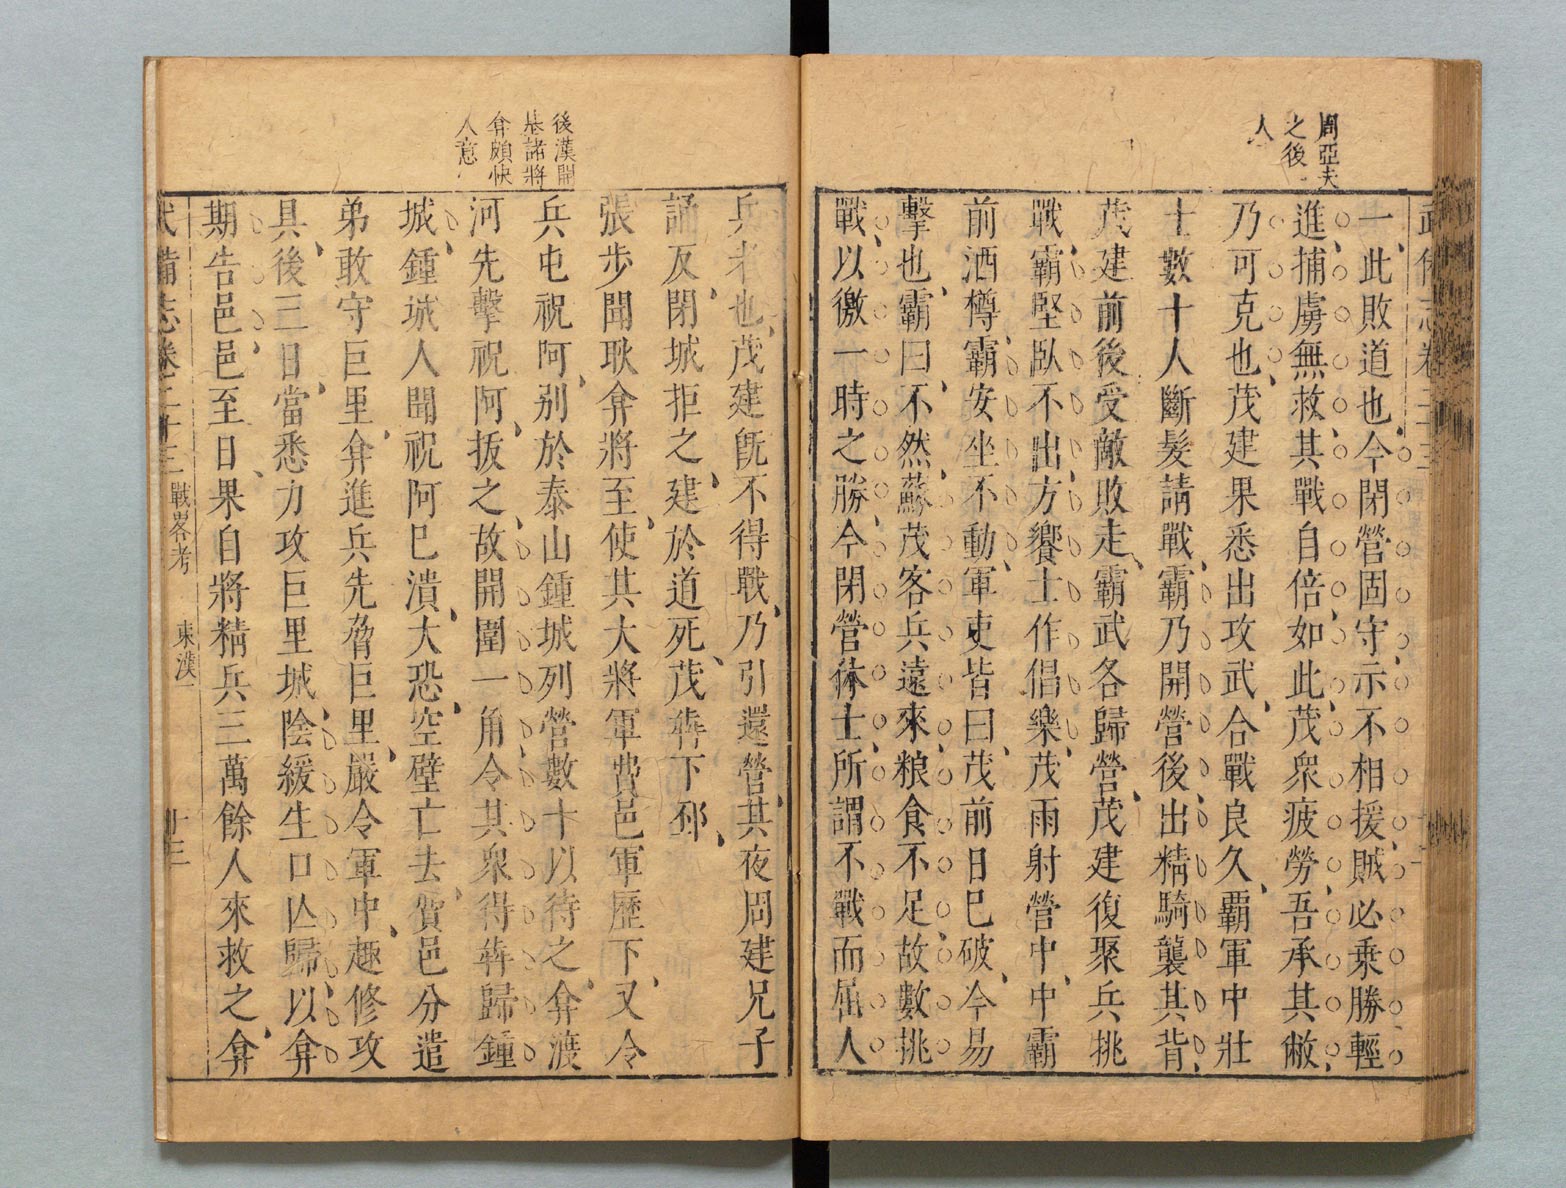 周亞夫
之後
人
武備志卷二十三
一、此敗道也、今閉營固守、示不相援、賊必乘勝輕
進、捕虜無救、其戰自倍、如此、茂衆疲勞、吾承其敝、
乃可克也、茂建果悉出攻武、合戰良久、霸軍中壯
士數十人斷髮請戰、霸乃開營後、出精騎襲其背、
茂建前後受敵敗走、霸武各歸營、茂建復聚兵挑
戰、霸堅臥不出、方饗士作倡樂、茂雨射營中、中霸
前酒樽、霸安坐不動、軍吏皆曰、茂前日已破、今易
擊也、霸曰、不然、蘇茂客兵遠來、粮食不足、故數挑
戰、以徼一時之勝、今閉營休士、所謂不戰而屈人
後漢開
基諸將
弇頗快
人意
兵者也、茂建旣不得戰、乃引還營、其夜周建兄子
誦反、閉城拒之、建於道死、茂犇下邳、
張步聞耿弇將至、使其大將軍費邑軍歷下、又令
兵屯祝阿、别於泰山鍾城列營數十以待之、弇渡
河先擊祝阿、拔之、故開圍一角、令其衆得犇歸鍾
城、鍾城人聞祝阿已潰、大恐、空壁亡去、費邑分遣
弟敢守巨里、弇進兵先脅巨里、嚴令軍中、趣修攻
具、後三日、當悉力攻巨里城、陰緩生口亾歸、以弇
期告邑、邑至日、果自將精兵三萬餘人來救之、弇
武備志卷二十三 戰畧考 東漢一 十三